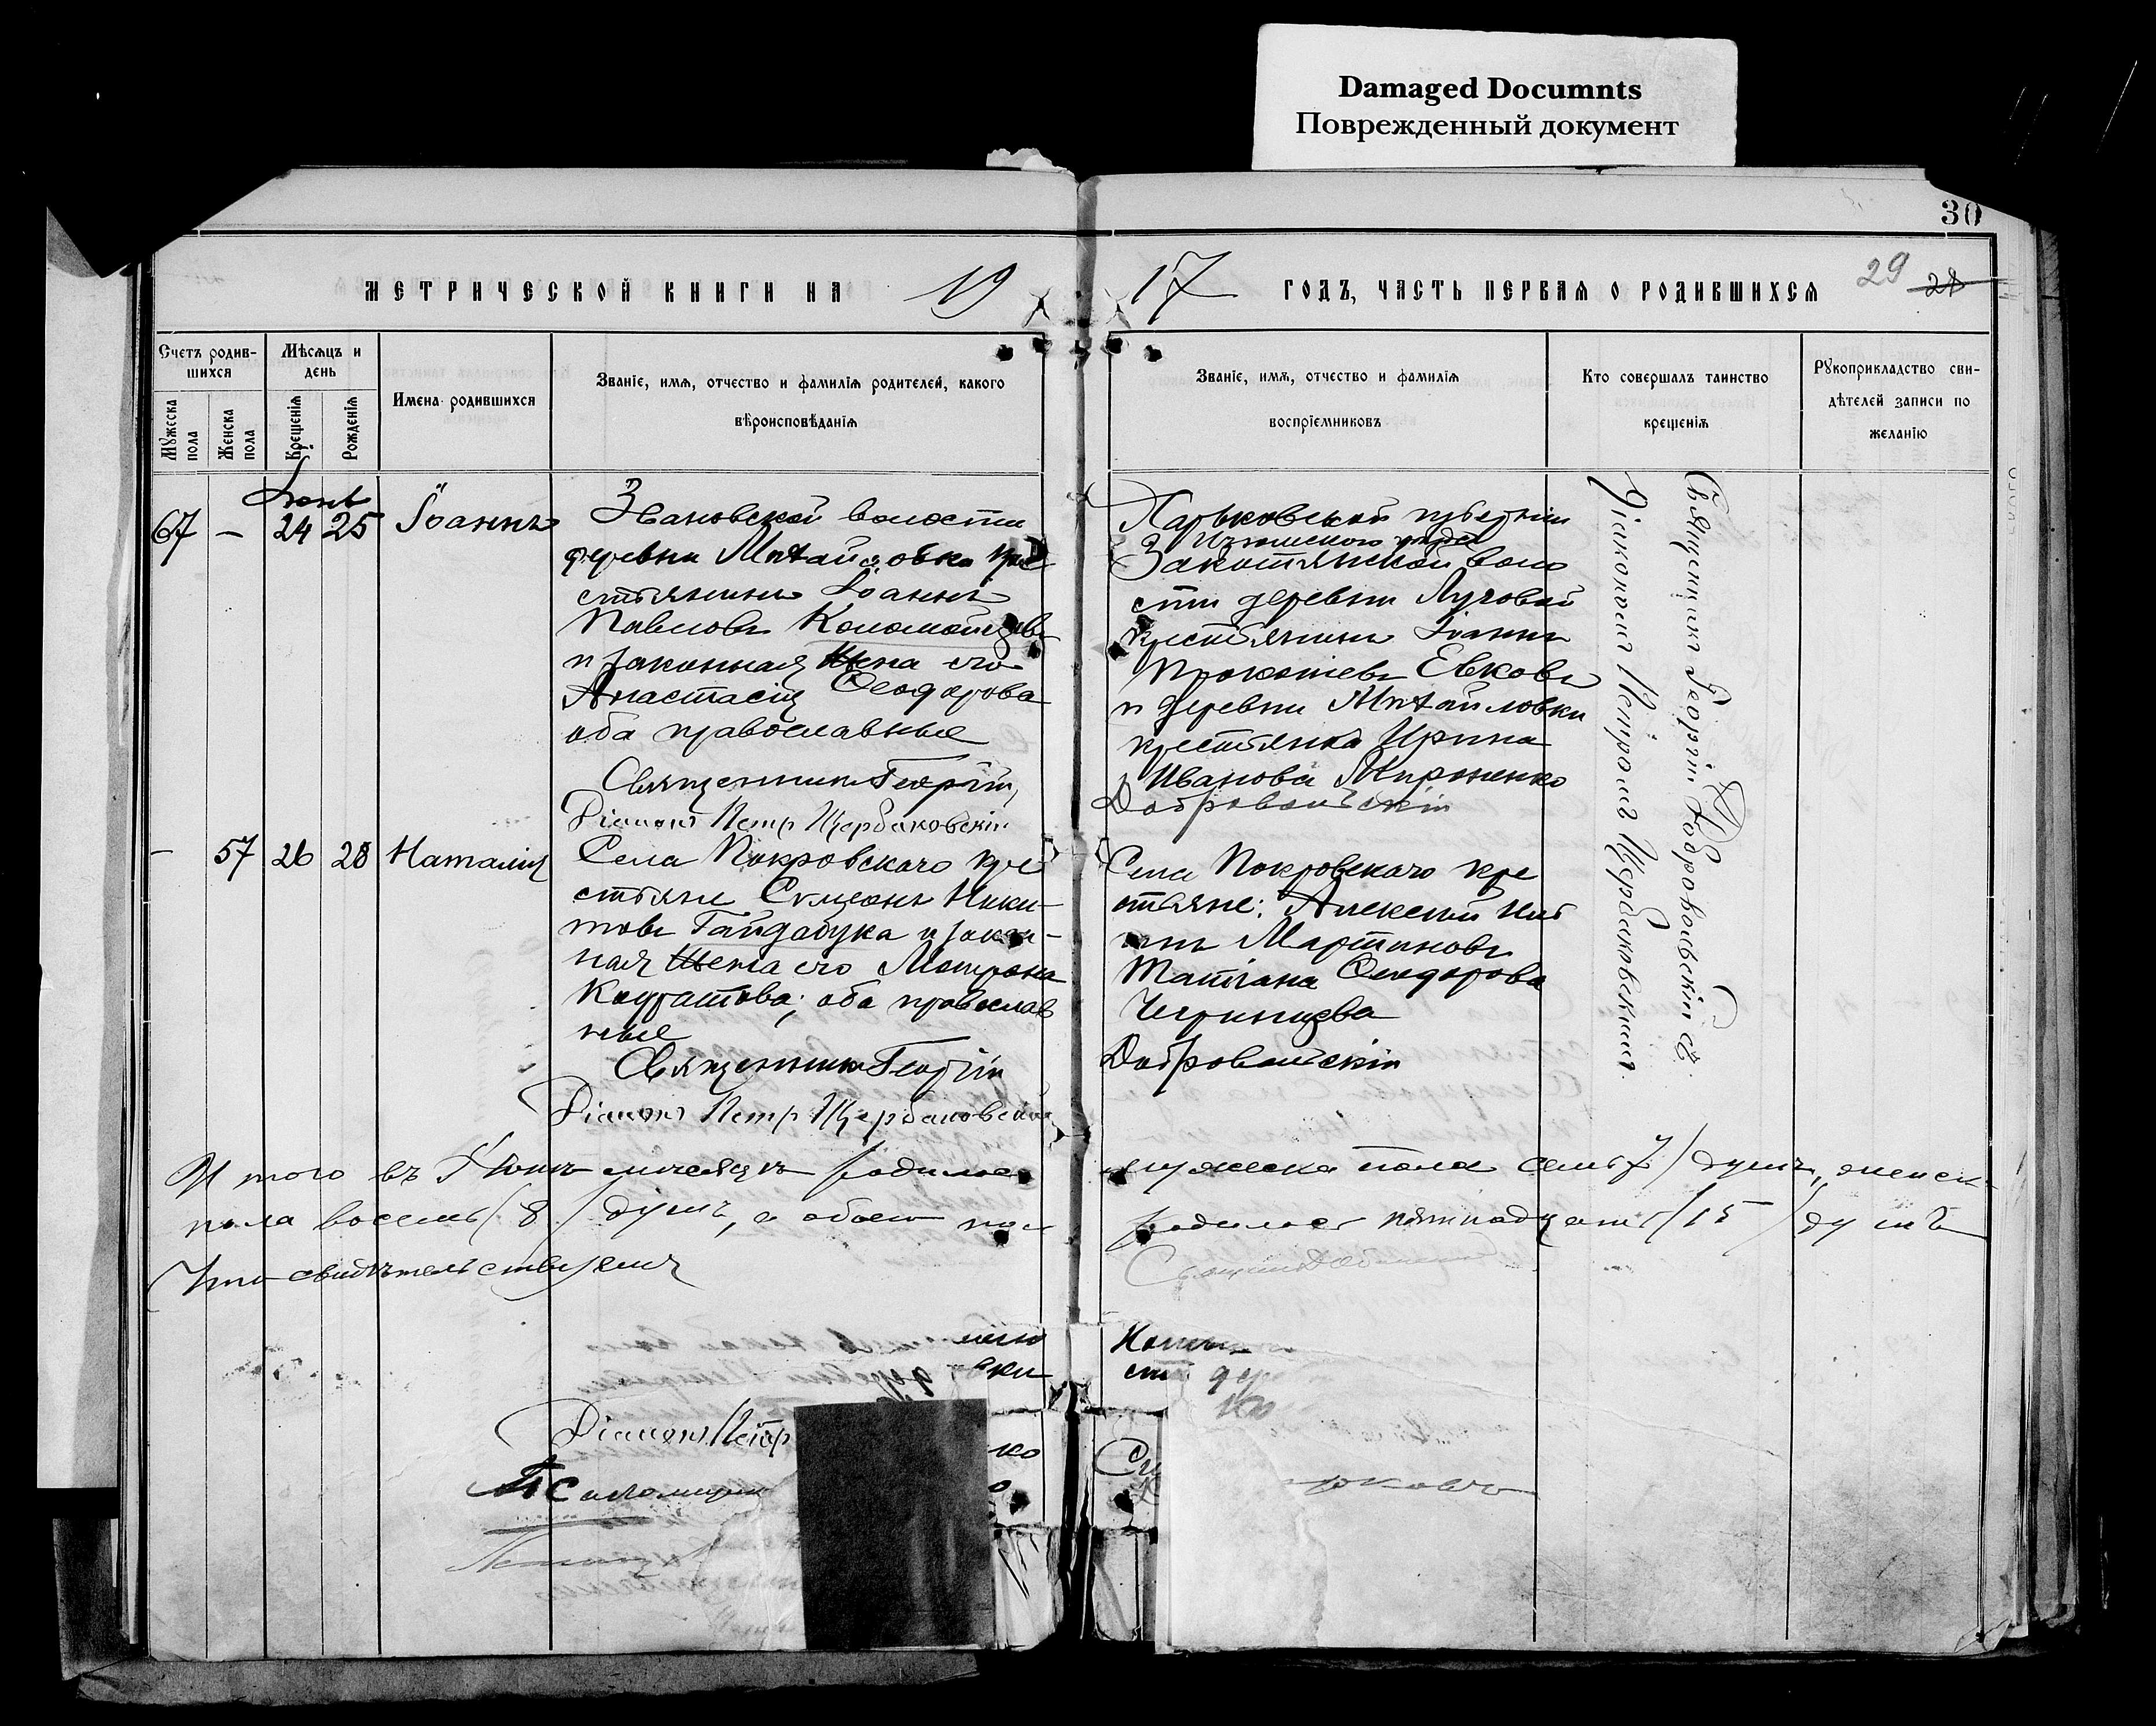 Damaged Documnts
Поврежденный документ
30
МЕТРИЧЕСКОЙ КНИГИ НА 19
17 ГОДЪ, ЧАСТЬ ПЕРВАЯ О РОДИВШИХСЯ
29 28
Счетъ родив-
шихся
Мужеска
пола
Женска
пола
Мѣсяцъ и
день
Крещенія
Рожденія
Имена родившихся
Званіе, имя, отчество и фамилія родителей, какого
вѣроисповѣданія
Званіе, имя, отчество и фамилія
воспріемниковъ
Кто совершалъ таинство
крещенія
Рукоприкладство сви-
дѣтелей записи по
желанію
67 – 24 25 Іоаннъ
Звановской волости
деревни Михайловки кре
стьянинъ Іоаннъ
Павловъ Коломойцевъ
и законная жена его
Анастасія Ѳеодорова
оба православные
Священникъ Георгій
Діаконъ Петр Щербаковскій
Харьковской губерніи
Изюмскаго уѣзда
Закотянской воло
сти деревни Луговой
крестьянинъ Іоаннъ
Прокопіевъ Евковъ
и деревни Михайловки
крестьянка Ирина
Иванова Мироненко
Добровольскій
Священникъ Георгій Добровольскій съ
Діакономъ Петромъ Щербаковскимъ.
– 57 26 28 Наталія
Села Покровскаго кре
стьяне Симеонъ Ники-
товъ Гайдабука и закон-
ная жена его Матрона
Кодратова; оба православ
ные
Священникъ Георгій
Діаконъ Петр Щербаковскій
Села Покровскаго кре
стьяне: Алексій
Мартиновъ
Татіана Ѳеодорова
Добровольскій
Итого въ Іюнѣ мѣсяцѣ родилось
мужеска пола семь /7/ душъ, женск
пола восемь /8/ душъ, а обоего пол
родилось пятнадцать /15/ душъ
Что свидѣтельствуемъ
вки
сти дер
Діаконъ Петр
Псаломщик
ко